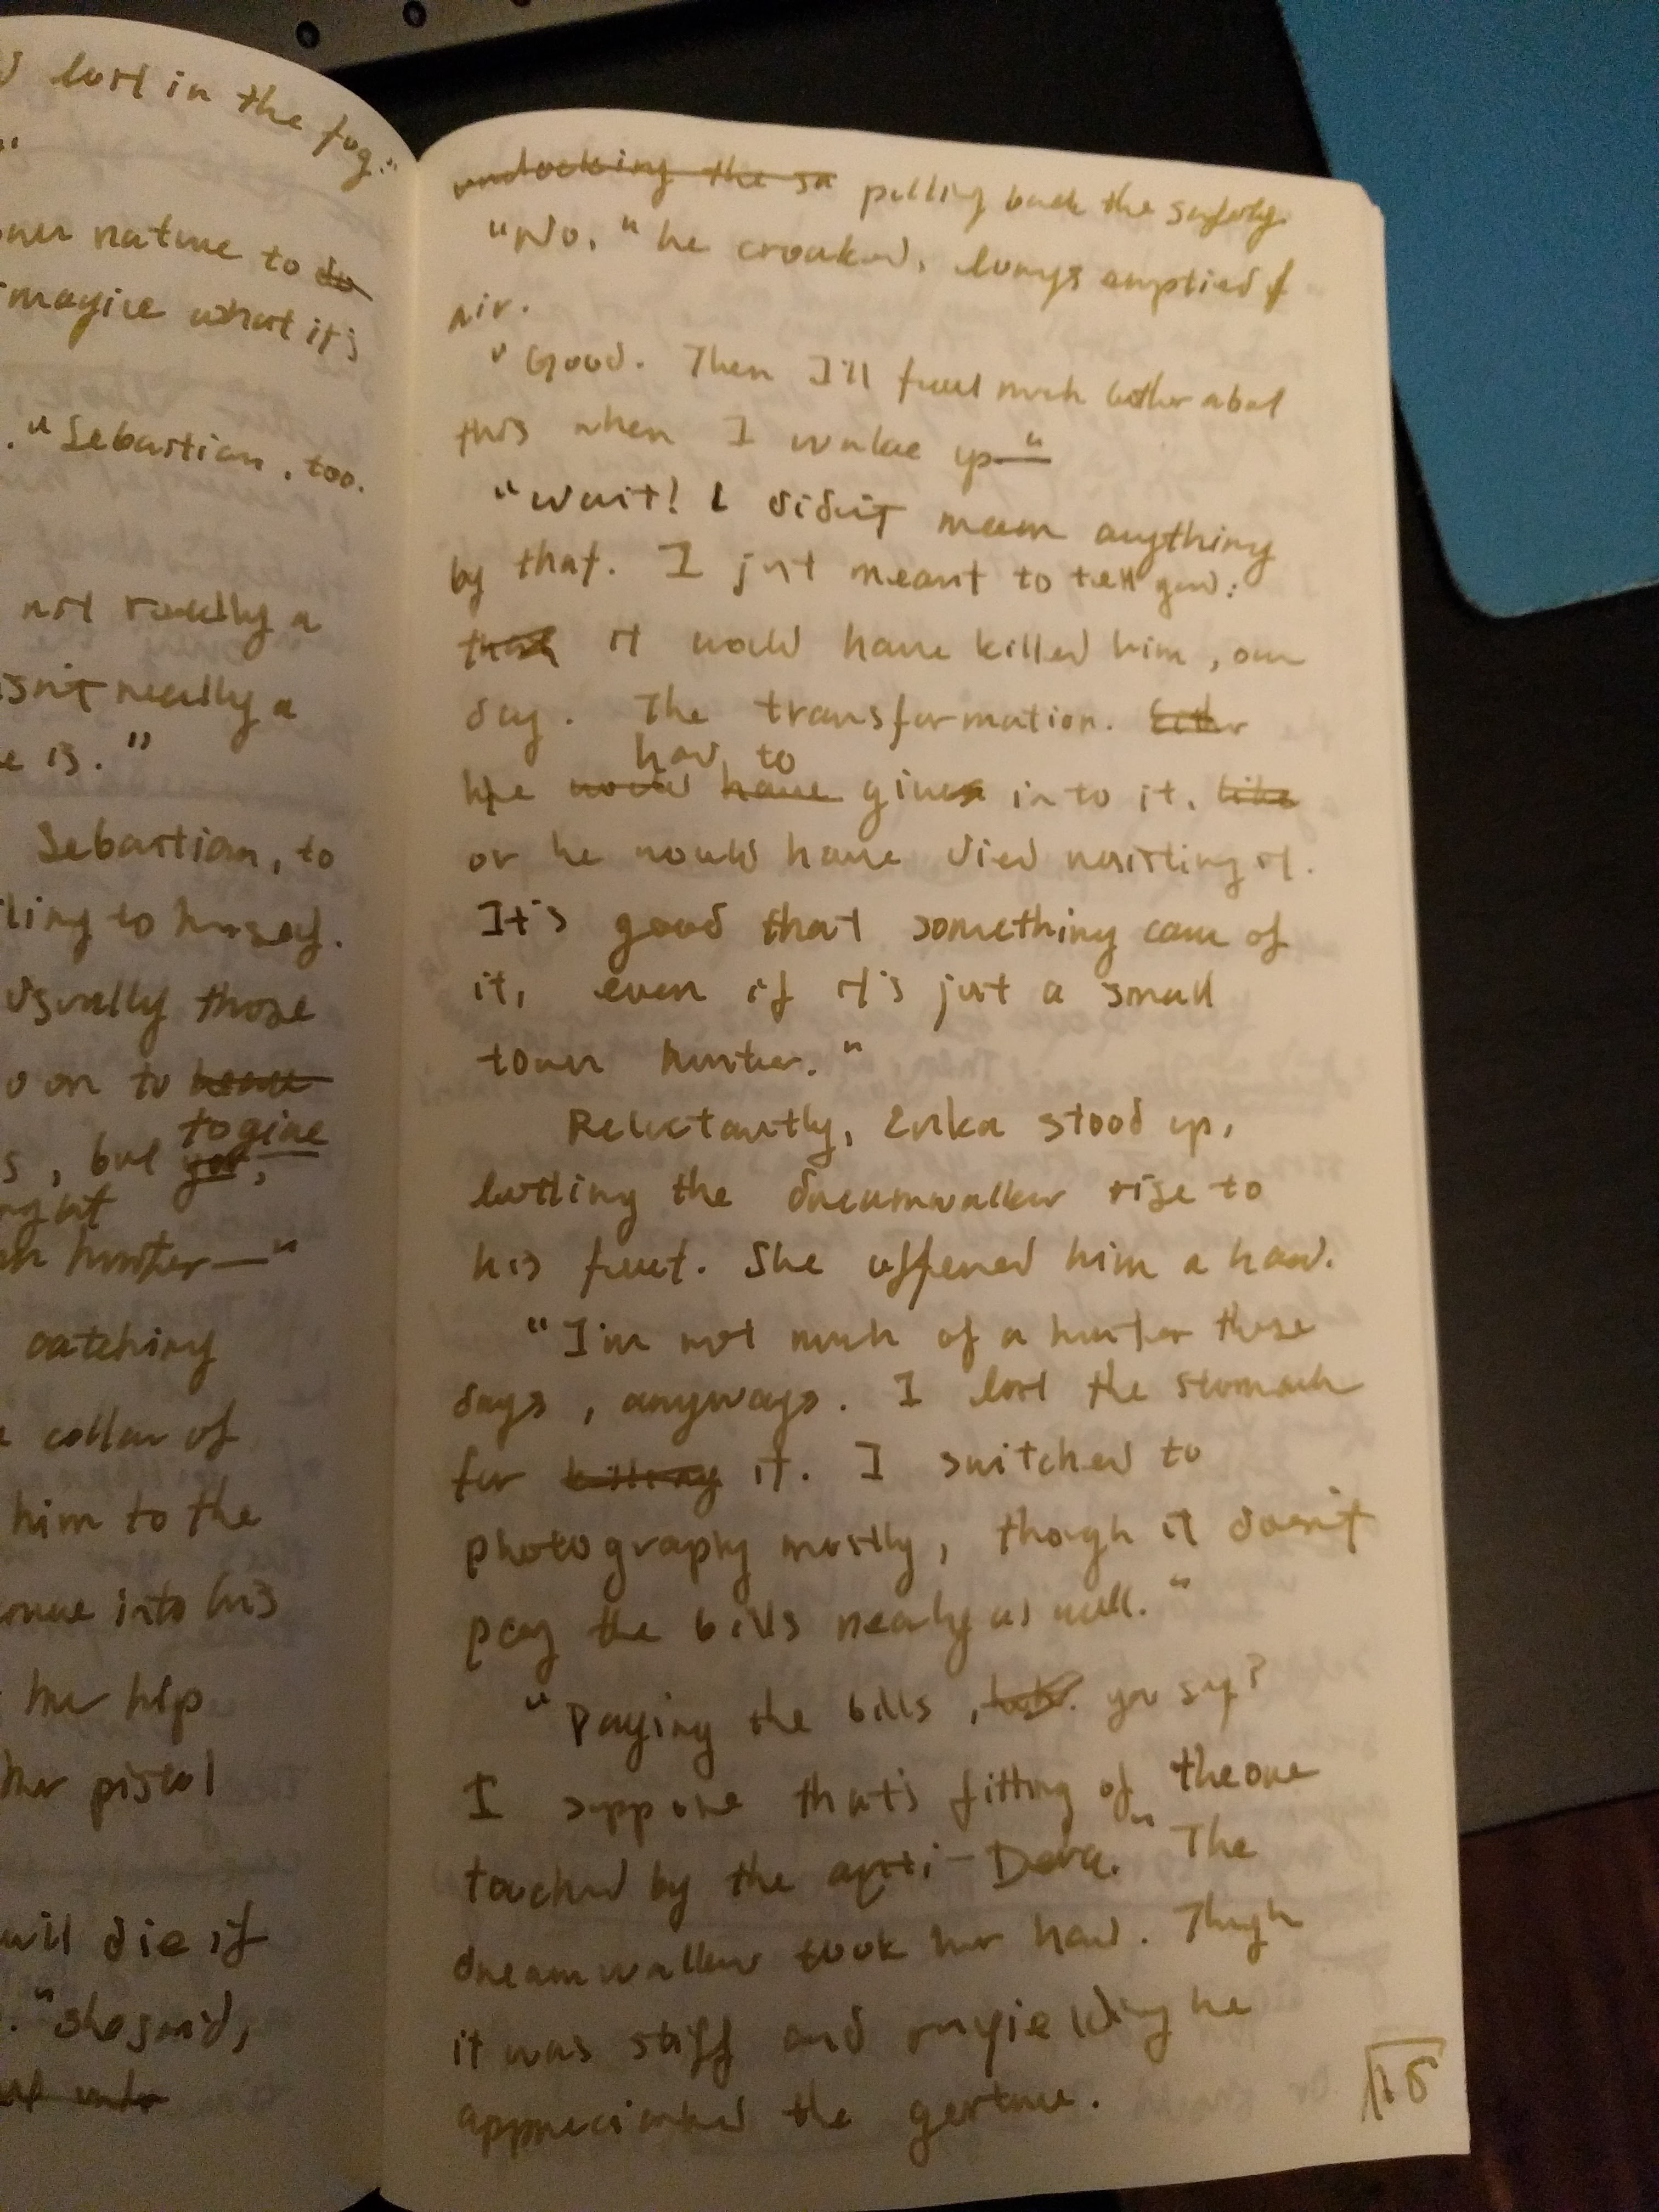 lost in the fog."
"
nature to do
imagine what it's
." Sebastian, too.
not really a
isn't really a
e is."
Sebastian, to
ling to hunsey.
usually those
on to
to give
s, but you,
hunter—"
catching
collar of
him to the
into his
her hip
her pistol
will die if
." she said,
unlocking the sa pulling back the safety.
"No." he croaked, lungs emptied of
air.
"Good. Then I'll feel much better about
this when I wake up—"
"Wait! I didn't mean anything
by that. I just meant to tell you:
that it would have killed him, one
day. The transformation. Either
had to
He would have given into it, like
or he would have died resisting it.
It's good that something came of
it, even if it's just a small
town hunter."
Reluctantly, Erika stood up,
letting the dreamwalker rise to
his feet. She offered him a hand.
"I'm not much of a hunter these
days, anyways. I lost the stomach
for killing it. I switched to
photography mostly, though it doesn't
pay the bills nearly as well."
"Paying the bills, you say?
I suppose that's fitting of the one
touched by the anti-Deva." The
dreamwalker took her hand. Though
it was stiff and unyielding he
appreciated the gesture.